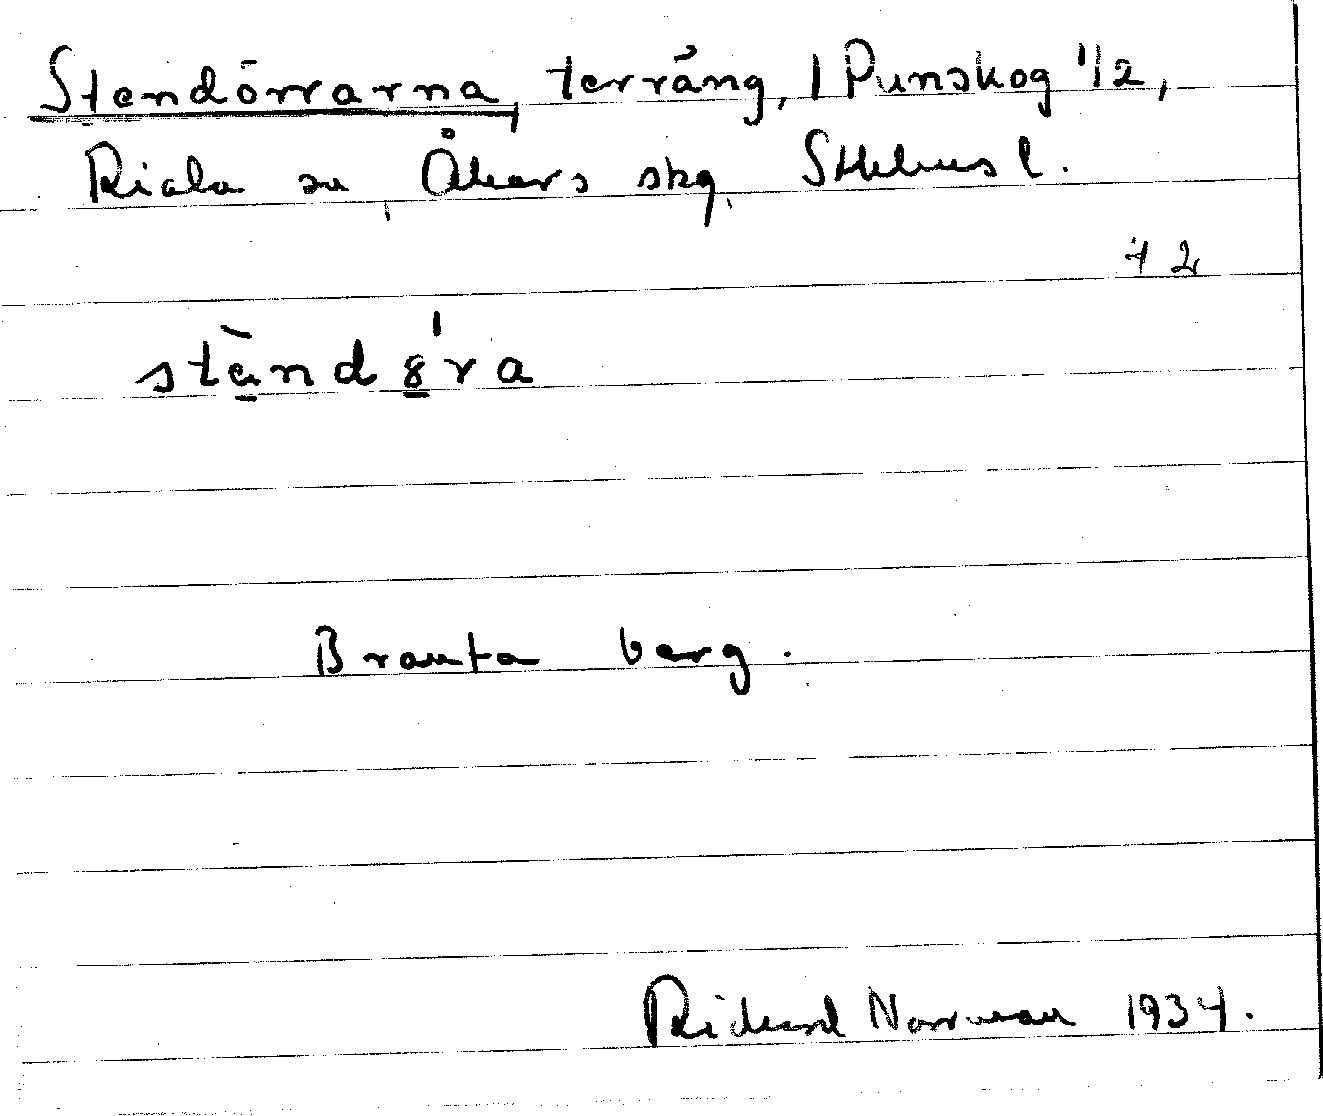 Stendörrarna, terräng, 1 Punskog 1/2,
Riala sn, Åkers skg, Sthlms l.
72
ständ8ra
Branta berg.
Richard Norrman 1934.